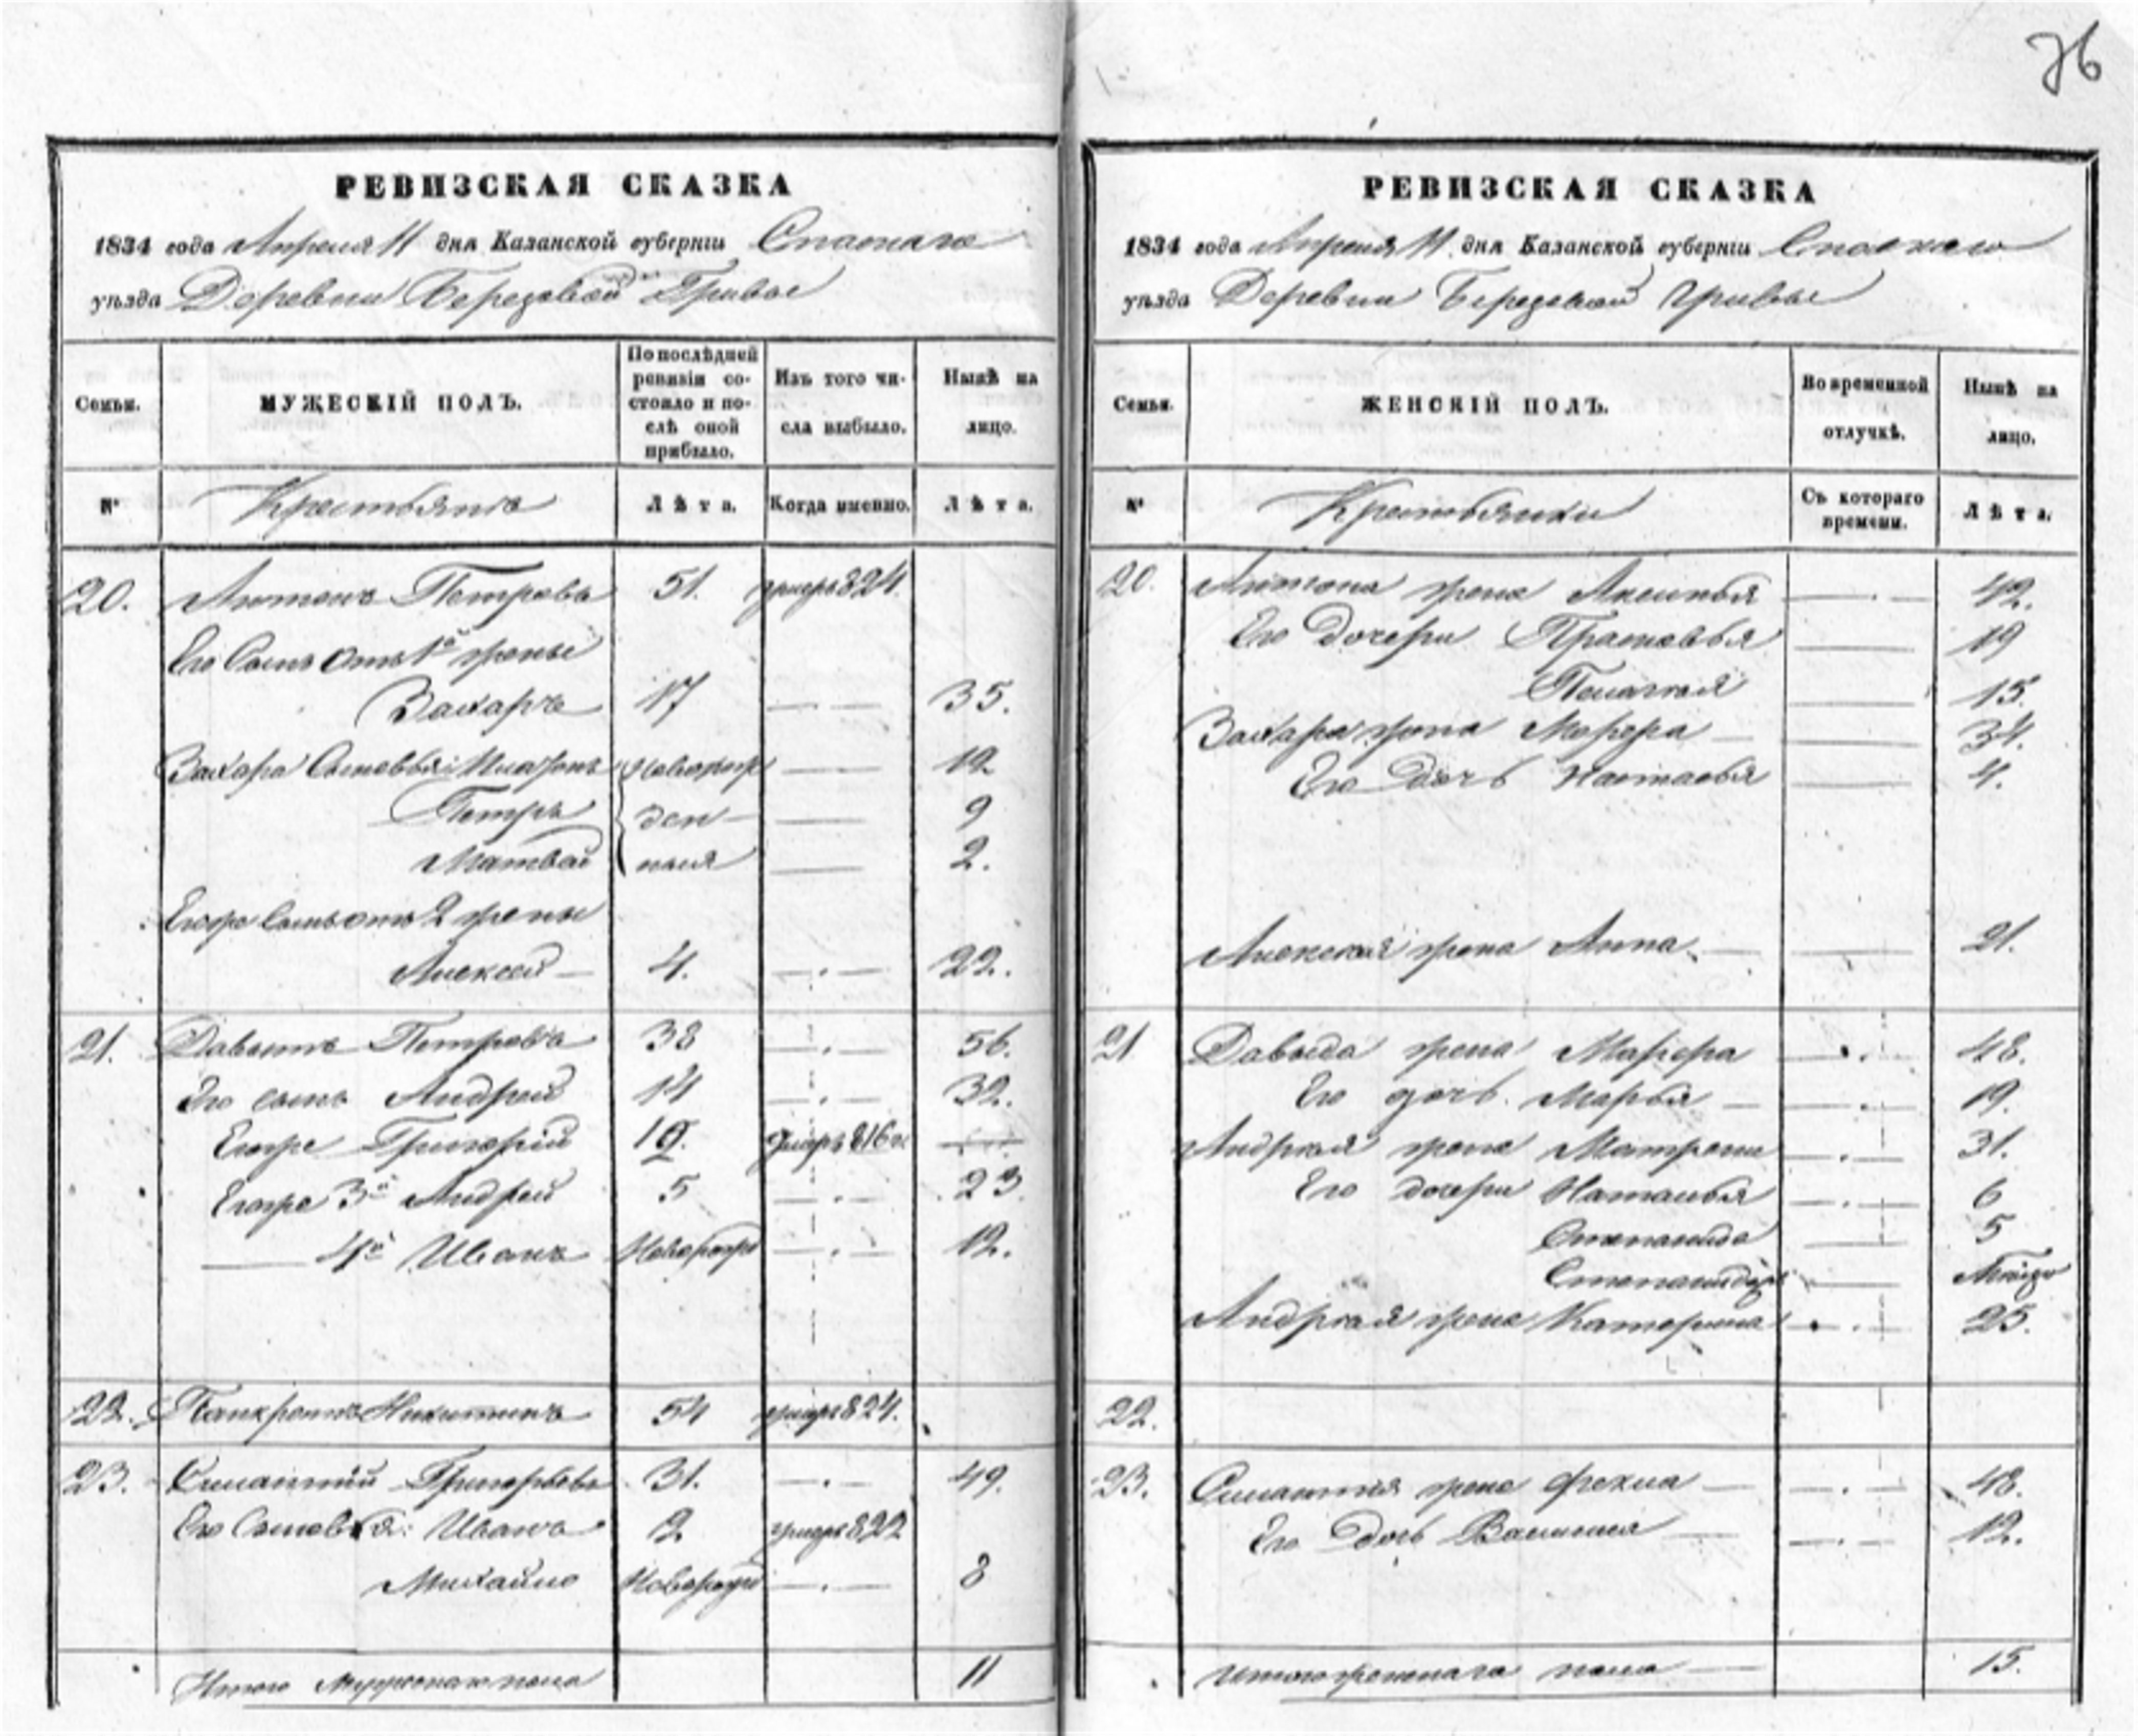 76
РЕВИЗСКАЯ СКАЗКА
1834 года Апреля 11 дня Казанской губернiи Спаскаго
уѣзда Деревни Березовой Гривы
Семьи.
МУЖЕСКІЙ ПОЛЪ.
По послѣдней ревизіи состояло и послѣ оной прибыло.
Изъ того числа выбыло.
Нынѣ на лицо.
№ Крестьянъ Лѣта. Когда именно. Лѣта.
20. Антонъ Петровъ 51. умеръ 824.
Его Сынъ отъ 1й жены
Захаръ 17 35.
Захара Сыновья: Новорож 12
Петръ ден 9
Матвей ныя 2.
Егоже Сынъ отъ 2 жены
Алексей 4. 22.
21. Давыдъ Петровъ 38 56.
Его сынъ Андрей 14 32.
Егоже Григорій 19. умеръ 816
Егоже 3й Андрей 5 23.
4й Иванъ Новорож 12.
22. Панкратъ Никитинъ 54 умеръ 824.
23. Силантій Григорьевъ 31. 49.
Его Сыновья: Иванъ 2 умеръ 822
Михайло Новорож 8
Итого Мужескаго пола 11
РЕВИЗСКАЯ СКАЗКА
1834 года Апреля 11 дня Казанской губернiи Спаскаго
уѣзда Деревни Березовой Гривы
Семьи.
ЖЕНСКІЙ ПОЛЪ.
Во временной отлучкѣ.
Нынѣ на лицо.
№ Крестьянки Съ котораго времени. Лѣта.
20. Антона жена Аксинья 42.
Его Дочери Прасковья 19
Пелагея 15.
Захара жена Марфа 34.
Его Дочь Настасья 4.
Алексея жена Анна 21.
21 Давыда жена Марфа 48.
Его дочь Марья 19.
Андрея жена Матрена 31.
Его дочери Наталья 6
Степанида 5
Степанида
Андрея жена Катерина 25.
22.
23. Силантія жена Фекла 48.
Его Дочь Василиса 12.
Итого женскаго пола 15.